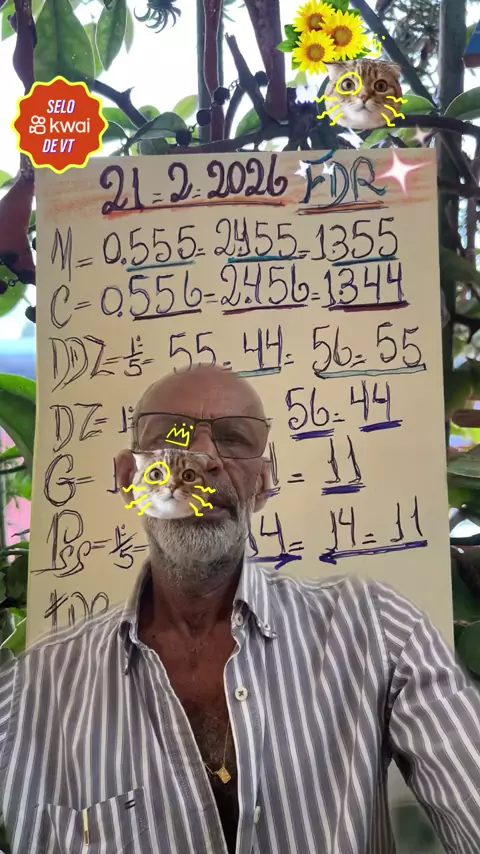 SELO
kwai
DE VT
21=2=2026 FDR
M=0.555=2.455=1355
C=0.556=2.456=1344
DDZ=1:/5=55=44=56=55
DZ=1: 56=44
G= 11
Pss=1:/5= 14=14=11